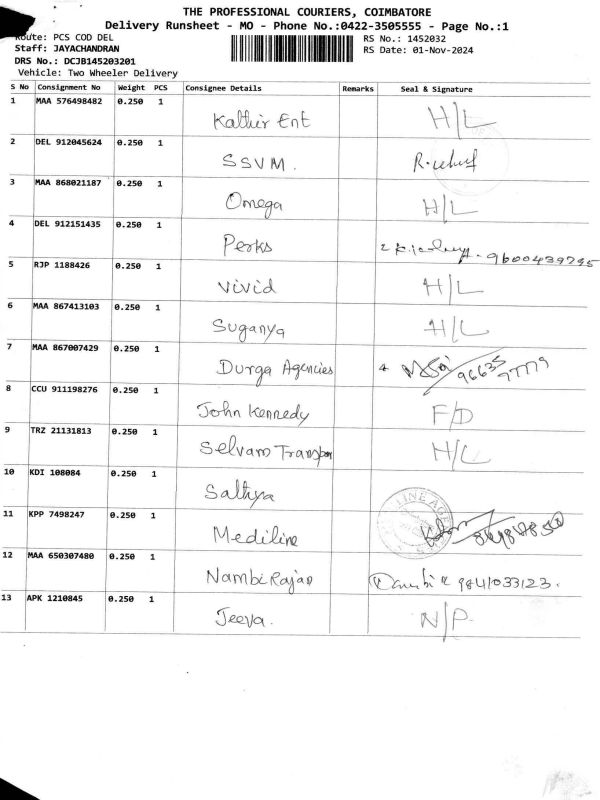 THE PROFESSIONAL COURIERS, COIMBATORE
Delivery Runsheet - MO - Phone No.:0422-3505555 - Page No.:1
Route: PCS COD DEL RS No.: 1452032
Staff: JAYACHANDRAN RS Date: 01-Nov-2024
DRS No.: DCJB145203201
Vehicle: Two Wheeler Delivery
S No Consignment No Weight PCS Consignee Details Remarks Seal & Signature
1 MAA 576498482 0.250 1 Kathir Ent H/L
2 DEL 912045624 0.250 1 SSVM.
3 MAA 868021187 0.250 1 Omega H/L
4 DEL 912151435 0.250 1 Perks 9600439795
5 RJP 1188426 0.250 1 Vivid H/L
6 MAA 867413103 0.250 1 Suganya H/L
7 MAA 867007429 0.250 1 Durga Agencies 96635 97779
8 CCU 911198276 0.250 1 John Kennedy F/D
9 TRZ 21131813 0.250 1 Selvam Transpor H/L
10 KDI 108084 0.250 1 Sathya
11 KPP 7498247 0.250 1 Mediline LINE AGE
12 MAA 650307480 0.250 1 Nambi Rajan 9841033123.
13 APK 1210845 0.250 1 Jeeva. N/P.